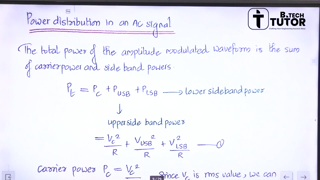 Power distribution in an AC signal
B.TECH
TUTOR
The total power of the amplitude modulated waveform is the sum
of carrier power and side band powers
Pt = Pc + PUSB + PLSB → lower side band power
↓
upper side band power
= Vc²/R + VUSB²/R + VLSB²/R — ①
carrier power Pc = Vc²/R Since Vc is rms value, we can